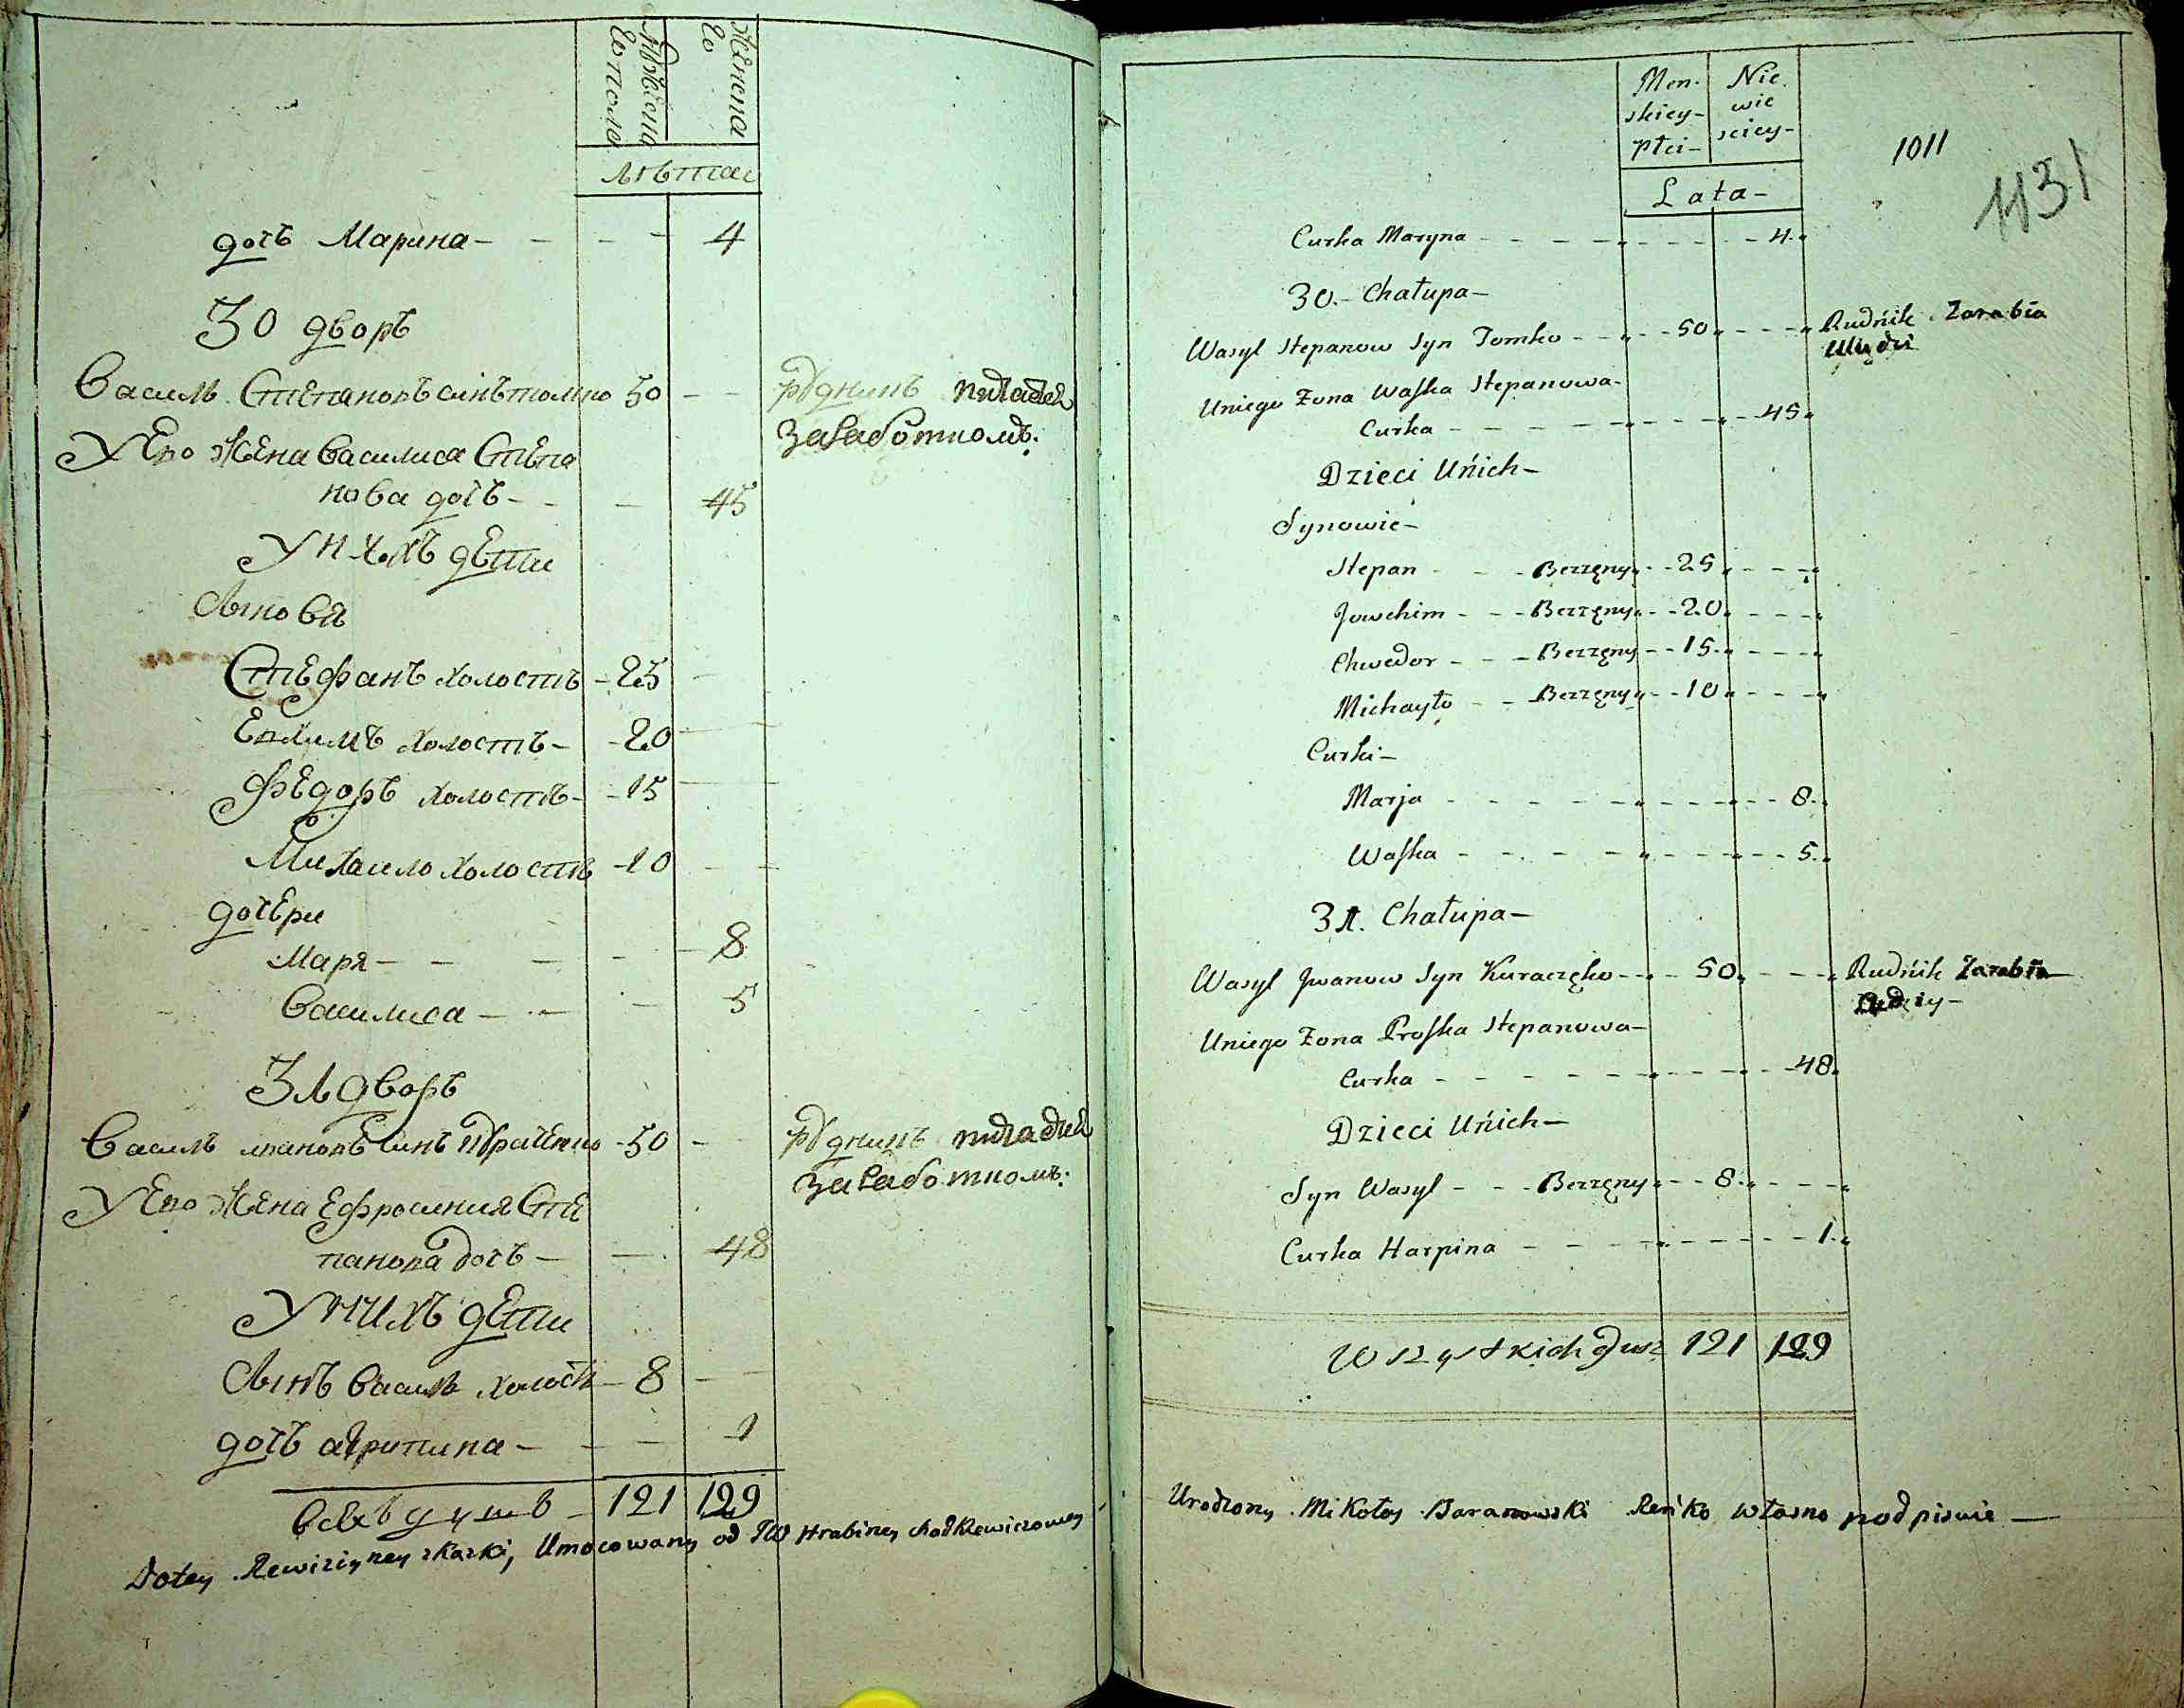 Мужеска
го пола
Женска
го
лѣта
дочь Марина - - - - 4
30 дворъ
Василь Степановъ синъ томко 50 - - рудникъ
заработкомъ.
У Его Жена Василиса Степа
нова дочь - - - 45
У нихъ дети
Синовя
Стефанъ холостъ - 25 -
Ехимъ холостъ - - 20
Федоръ холостъ - - 15
Михаило холостъ - 10 - -
дочери
Маря - - - - - 8
Василиса - - - 5
31 дворъ
Василь ивановъ синъ Курачѣнко - 50 - рудникъ
заработкомъ:
У Его Жена Ефросиния Сте
панова дочь - - 48
У нихъ дети
Синъ Василь холостъ - 8 - -
дочь агрипина - - - 1
всехъ душъ - 121 129
Dotey Rewizizney skazki, Umocowany od JW Hrabiney Chodkiewiczowey
Men-
skiey-
Płci-
Nie
wie
sciey-
Lata-
1011
1131
Curka Maryna - - - - - - - 4
30.- Chałupa-
Wasyl Stepanow Syn Tomko - - - 50 - - - Rudnik Zarabia
Uniego Zona Waska Stepanowa-
Curka - - - - - - - 45
Dzieci Unich-
Synowie-
Stepan - - - Bezzęny - - 25 - - -
Jowchim - - - Bezzęny - - 20 - - -
Chwedor - - - Bezzęny - - 15 - - -
Michayło - - Bezzęny - - 10 - - -
Curki-
Marja - - - - - - - - 8
Waska - - - - - - - - 5
31. Chałupa-
Wasyl Jwanow Syn Kuraczęko - - 50 - - - Rudnik Zarabia
Uniego Zona Proska Stepanowa-
Curka - - - - - - - 48
Dzieci Unich-
Syn Wasyl - - - Bezzęny - - 8 - - -
Curka Harpina - - - - - - - 1
Wszystkich Dusz 121 129
Urodzony Mikołay Baranowski Ręńko własno podpisuie -